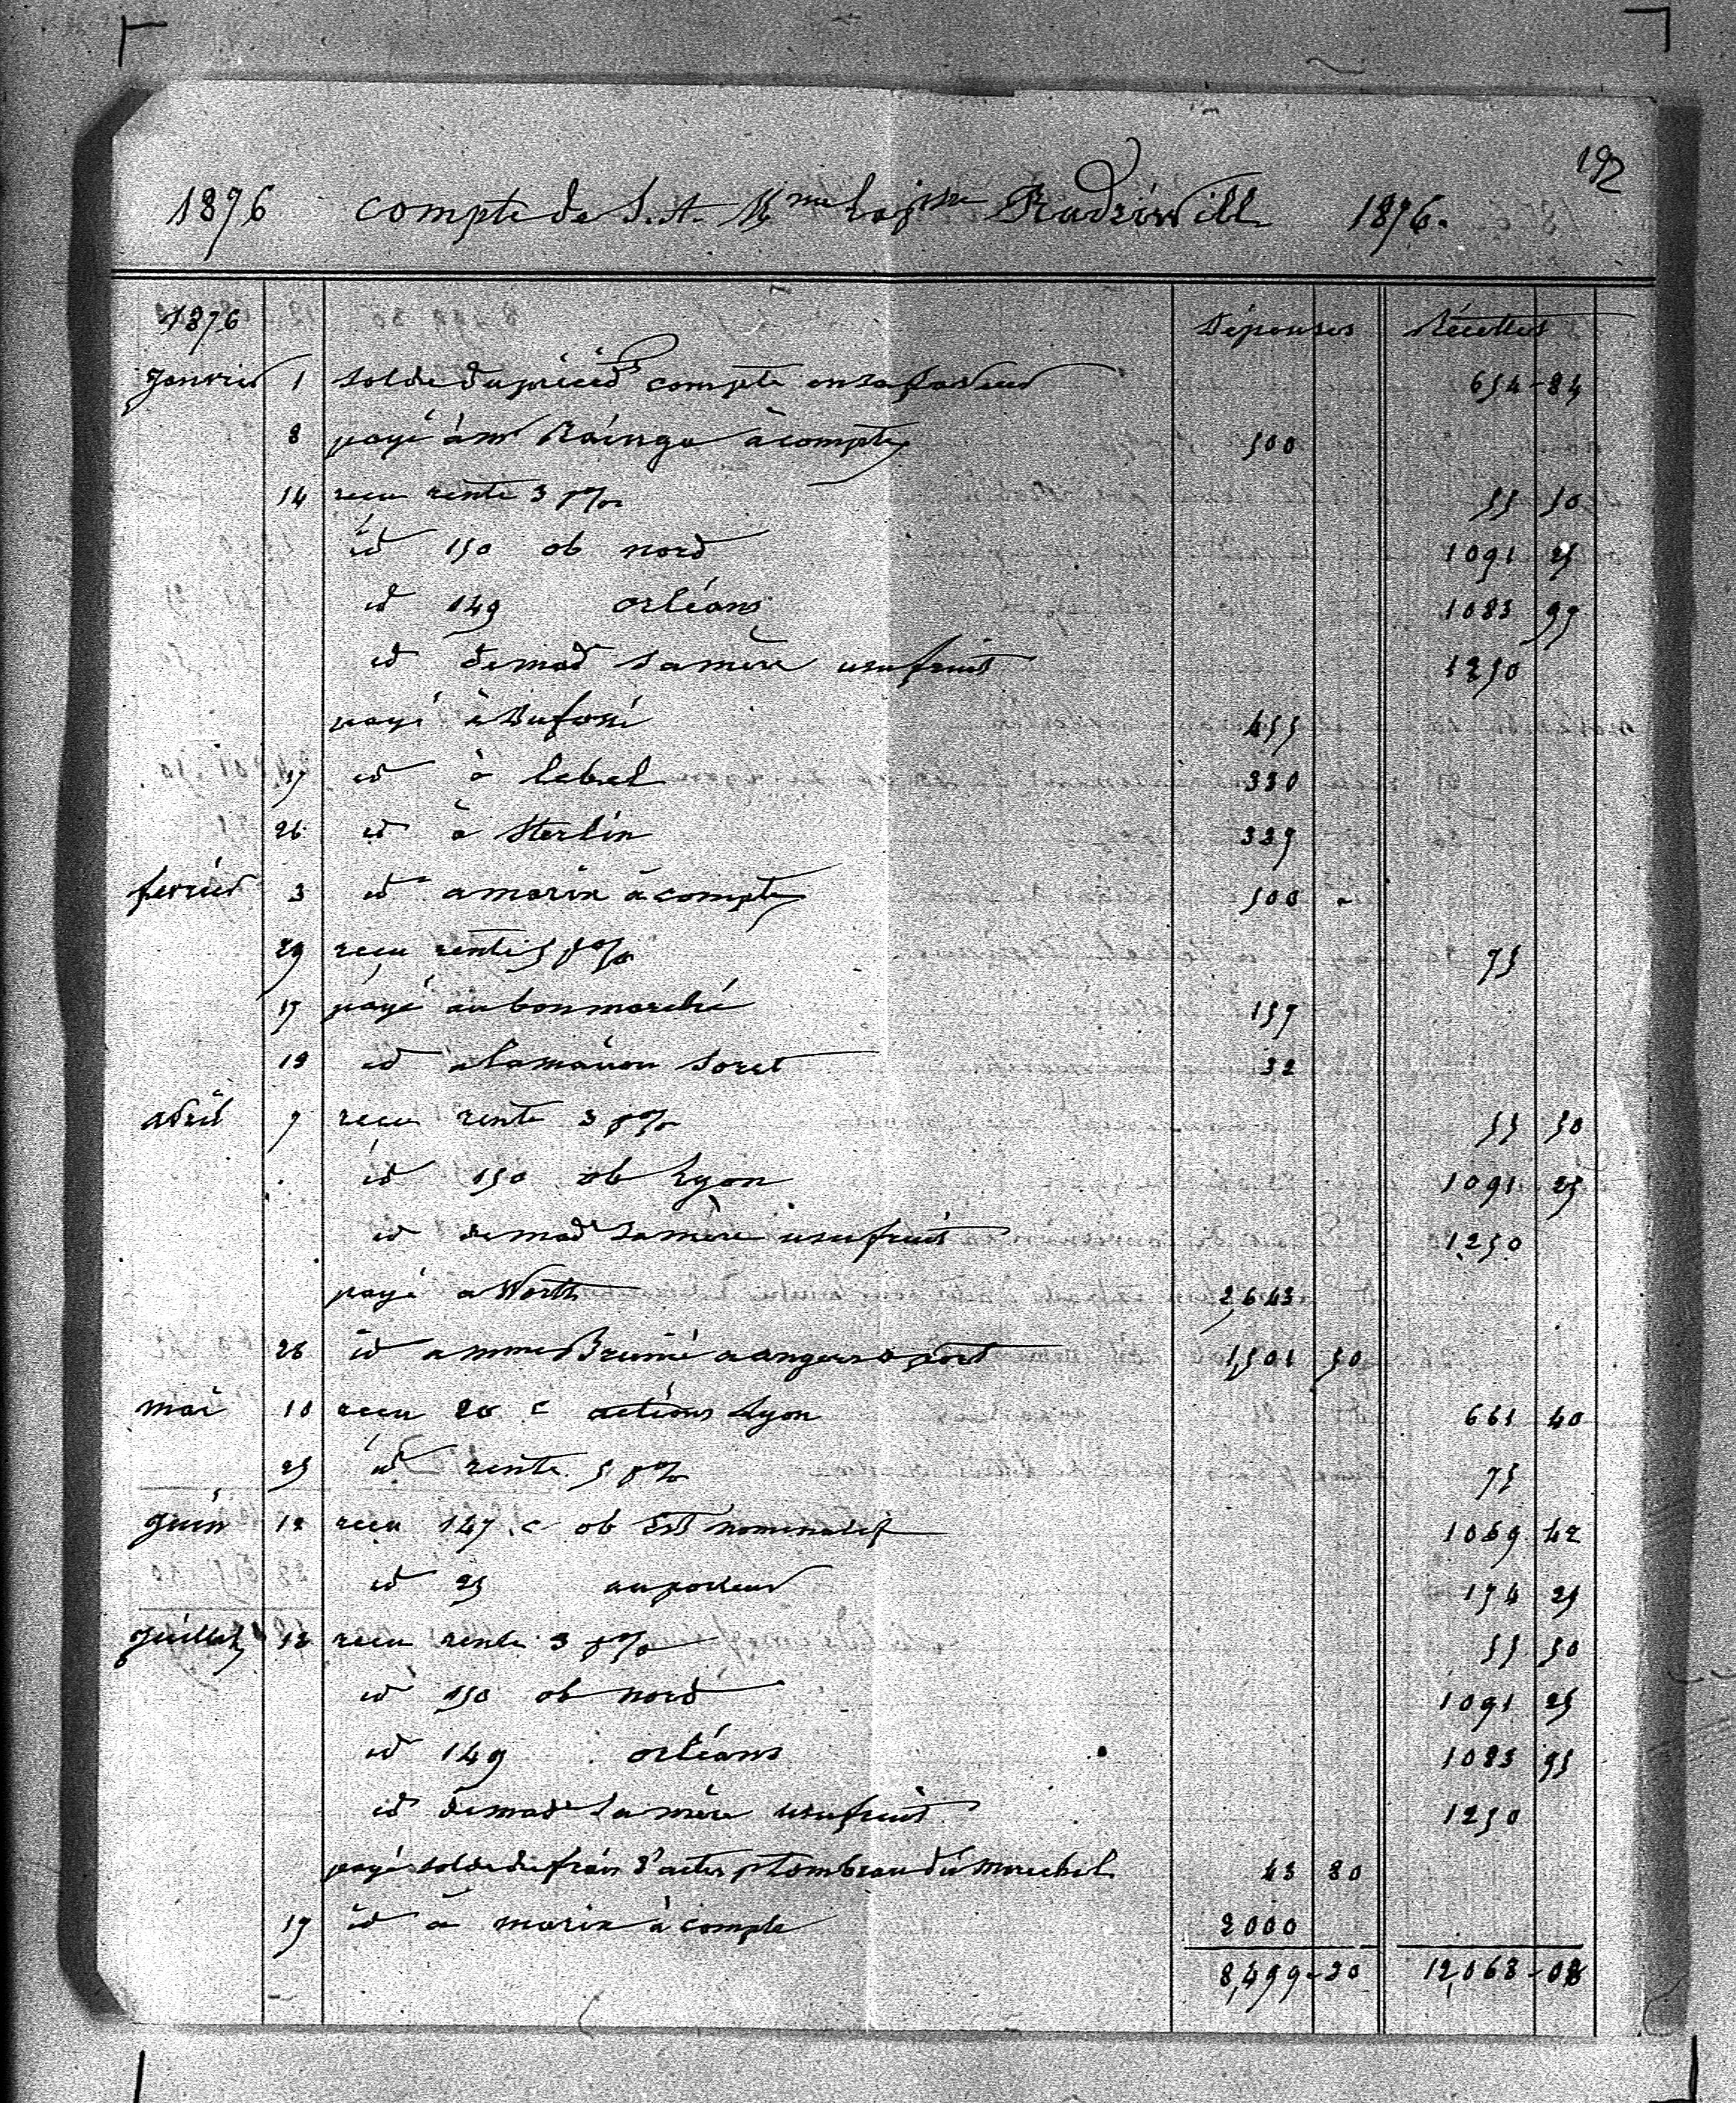 192
1876 compte de S.A. Mme la psse Radziwill 1876.
1876 Dépenses Récettes
Janvier 1 solde du précédt compte en sa faveur 654 - 84
8 payé à mr Raingo à compte 500
14 recu rente 3 p% 55 50
id 150 ob nord 1091 25
id 149 orléans 1083 95
id de mad sa mère usufruit 1250
payé à Dufossé 455
17 id à lebel 330
26 id à Sterlin 337
fevrier 3 id a marix à compte 500 "
29 reçu rente 5 p% 75
17 payé au bon marché 157
19 id à la maison Soret 32
avril 7 recu rente 3 p% 55 50
id 150 ob Lyon 1091 25
id de made sa mère usufruit 1250
payé a Worth 2,643
28 id a mme à angers &
 1,501 50
mai 10 reçu 20 c actions Lyon 661 40
25 id rente 5 p% 75
Juin 12 reçu 147 c ob Est nominatif 1069 42
id 25 au porteur 174 25
Juillet 12 recu rente 3 p% 55 50
id 150 ob nord 1091 25
id 149 orléans 1083 95
id de made sa mère usufruit 1250
payé solde de frais d'actes p tombeau du marechal 43 80
17 id à marix à compte 2000
8,499 - 30 12,068 - 08